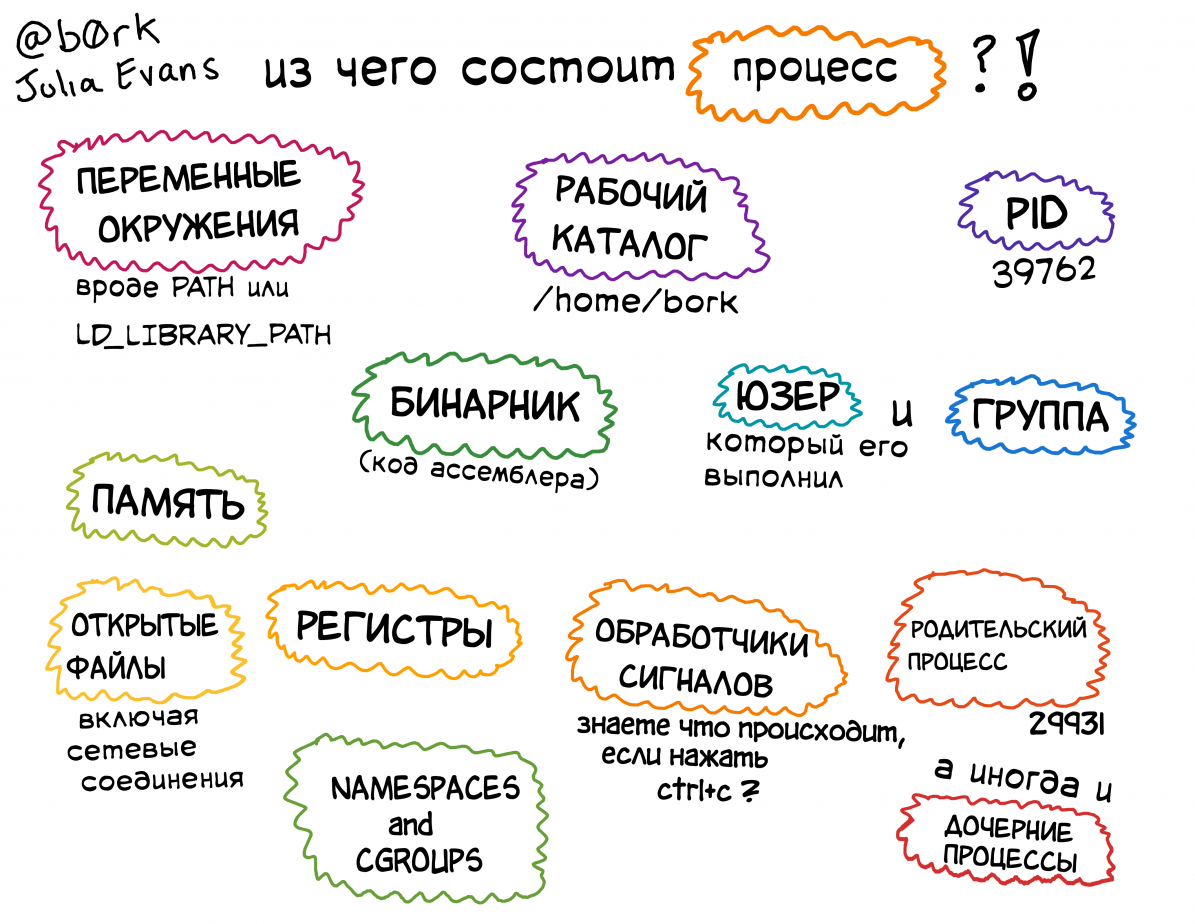 @b0rk
Julia Evans
из чего состоит процесс ?!
ПЕРЕМЕННЫЕ
ОКРУЖЕНИЯ
вроде PATH или
LD_LIBRARY_PATH
РАБОЧИЙ
КАТАЛОГ
/home/bork
PID
39762
БИНАРНИК
(код ассемблера)
ЮЗЕР и ГРУППА
который его
выполнил
ПАМЯТЬ
ОТКРЫТЫЕ
ФАЙЛЫ
включая
сетевые
соединения
РЕГИСТРЫ
ОБРАБОТЧИКИ
СИГНАЛОВ
знаете что происходит,
если нажать
ctrl+c ?
РОДИТЕЛЬСКИЙ
ПРОЦЕСС
29931
а иногда и
ДОЧЕРНИЕ
ПРОЦЕССЫ
NAMESPACES
and
CGROUPS